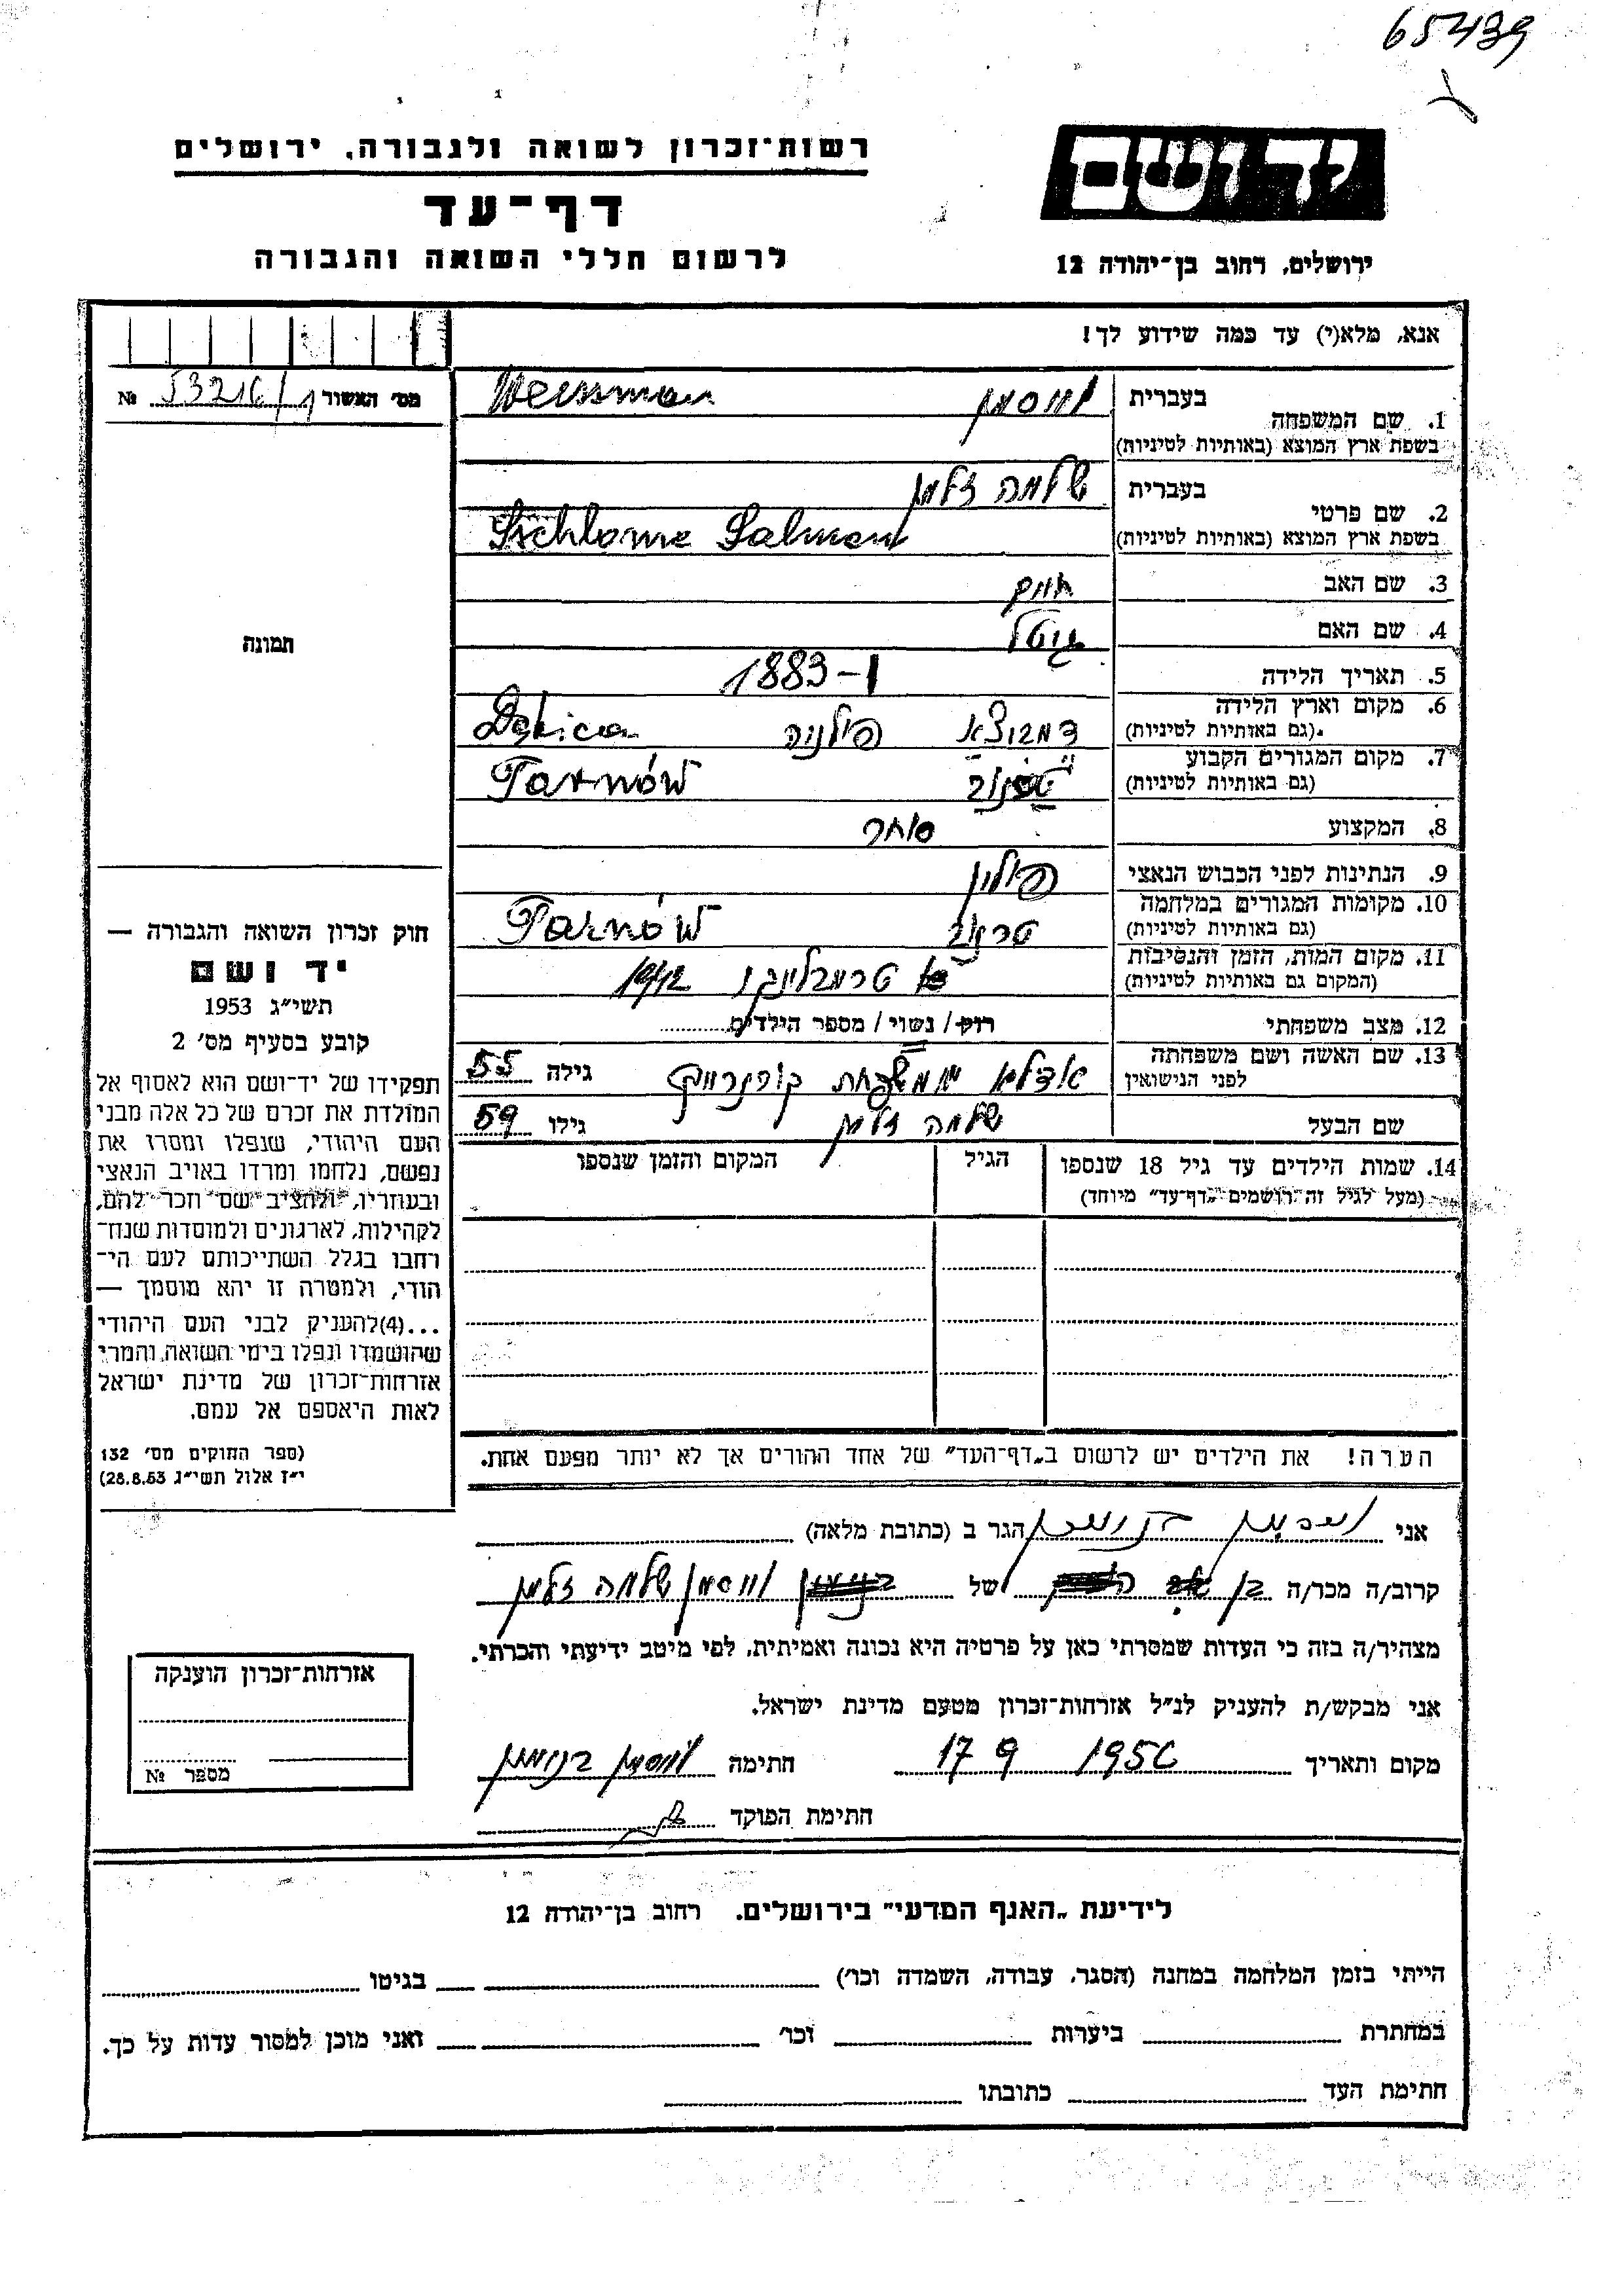 65439
רשות־זכרון לשואה ולגבורה, ירושלים
דף־עד
לרשום חללי השואה והגבורה
יד ושם
ירושלים, רחוב בן־יהודה 12
אנא, מלא(י) עד כמה שידוע לך!
מס׳ האשור 53216/1 №
1. שם המשפחה בעברית וויסמן Weissman
בשפת ארץ המוצא (באותיות לטיניות)
2. שם פרטי בעברית שלמה זלמן
בשפת ארץ המוצא (באותיות לטיניות) Schlome Salman
3. שם האב חיים
4. שם האם גיטל
5. תאריך הלידה 1883-1
6. מקום וארץ הלידה דמביצא פולניה Dębica
(גם באותיות לטיניות)
7. מקום המגורים הקבוע טרנוב Tarnów
(גם באותיות לטיניות)
8. המקצוע סוחר
9. הנתינות לפני הכבוש הנאצי פולין
10. מקומות המגורים במלחמה טרנוב Tarnów
(גם באותיות לטיניות)
11. מקום המות, הזמן והנסיבות טרמבלינקי 1942
(המקום גם באותיות לטיניות)
12. מצב משפחתי רווק / נשוי / מספר הילדים
13. שם האשה ושם משפחתה אדלא ממשפחת גילה 55
לפני הנישואין
שם הבעל שלמה זלמן גילו 59
14. שמות הילדים עד גיל 18 שנספו הגיל המקום והזמן שנספו
(מעל לגיל זה רושמים „דף־עד״ מיוחד)
הערה! את הילדים יש לרשום ב„דף־העד״ של אחד ההורים אך לא יותר מפעם אחת.
תמונה
חוק זכרון השואה והגבורה —
יד ושם
תשי״ג 1953
קובע בסעיף מס׳ 2
תפקידו של יד־ושם הוא לאסוף אל
המולדת את זכרם של כל אלה מבני
העם היהודי, שנפלו ומסרו את
נפשם, נלחמו ומרדו באויב הנאצי
ובעוזריו, ולהציב שם וזכר להם,
לקהילות, לארגונים ולמוסדות שנח־
רבו בגלל השתייכותם לעם הי־
הודי, ולמטרה זו יהא מוסמך —
...(4)להעניק לבני העם היהודי
שהושמדו ונפלו בימי השואה והמרי
אזרחות־זכרון של מדינת ישראל
לאות היאספם אל עמם.
(ספר החוקים מס׳ 132
י״ז אלול תשי״ג 28.8.53)
אני וויסמן בנימין הגר ב (כתובת מלאה)
קרוב/ה מכר/ה בן של וויסמן שלמה זלמן
מצהיר/ה בזה כי העדות שמסרתי כאן על פרטיה היא נכונה ואמיתית, לפי מיטב ידיעתי והכרתי.
אני מבקש/ת להעניק לנ״ל אזרחות־זכרון מטעם מדינת ישראל.
מקום ותאריך 1956 9 17 חתימה וויסמן בנימין
חתימת הפוקד
אזרחות־זכרון הוענקה
מספר №
לידיעת „האגף המדעי״ בירושלים. רחוב בן־יהודה 12
הייתי בזמן המלחמה במחנה (הסגר, עבודה, השמדה וכו׳) בגיטו
במחתרת ביערות וכו׳ ואני מוכן למסור עדות על כך.
חתימת העד כתובתו